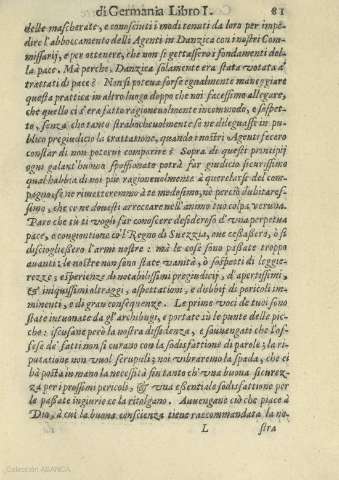 di Germania Libro I. 81
delle mascherate, e conosciuti i modi tenuti da loro per impe-
dire l'abboccamento delli Agenti in Danzica con i nostri Com-
missarij, e per ottenere, che non si gettassero i fondamenti del-
la pace. Mà perche Danzica solamente era stata votata a'
trattati di pace? Non si poteua forse egualmente maneggiare
questa pratica in altro luogo doppo che noi facessimo allegare,
che quello ci s'era fatto ragioneuolmente incommodo, e sospet-
to, senza che tanto strabocheuolmente se ne dileguasse in pub-
blico pregiudicio la trattatione, quando i nostri Agenti fecero
constar di non poterui comparire? Sopra di questi principij
ogni galant'huomo spassionato potrà far giudicio sicurissimo
qual habbia di noi più ragioneuolmente à querelarsi del com-
pagno, se ne rimetteremo à te medesimo, nè perciò dubitares-
simo, che ce ne douesti arreccare nell'animo tuo colpa veruna.
Pare che tù ti vogli far conoscere desideroso d'vna perpetua
pace, e congontione co'l Regno di Suezzia, oue cessassero, ò si
disciogließero l'armi nostre: mà le cose sono paßate troppo
auanti; le nostre non sono state vanità, ò sospetti di leggie-
rezze; esperienze di notabilissimi pregiudicij, d'apertissimi,
& iniquissimi oltraggi, aspettationi, e dubbij di pericoli im-
minenti, e di gran conseguenze. Le prime voci de tuoi sono
state intuonate da gl'archibugi, e portate sù le punte delle pic-
che: iscusane però la nostra diffidenza, e souuengati che l'of-
fese de' fatti non si curano con la sodisfattione di parole; la ri-
putatione non vuol scrupuli; noi vibraremo la spada, che ci
hà posta in mano la necessità fin tanto ch'vna buona sicurez-
za per i prossimi pericoli, & vna essentiale sodisfattione per
le paßate ingiurie ce la ritolgano. Auuengane ciò che piace à
Dio, à cui la buona conscienza tiene raccommandata la no-
L stra
Colección ABANCA